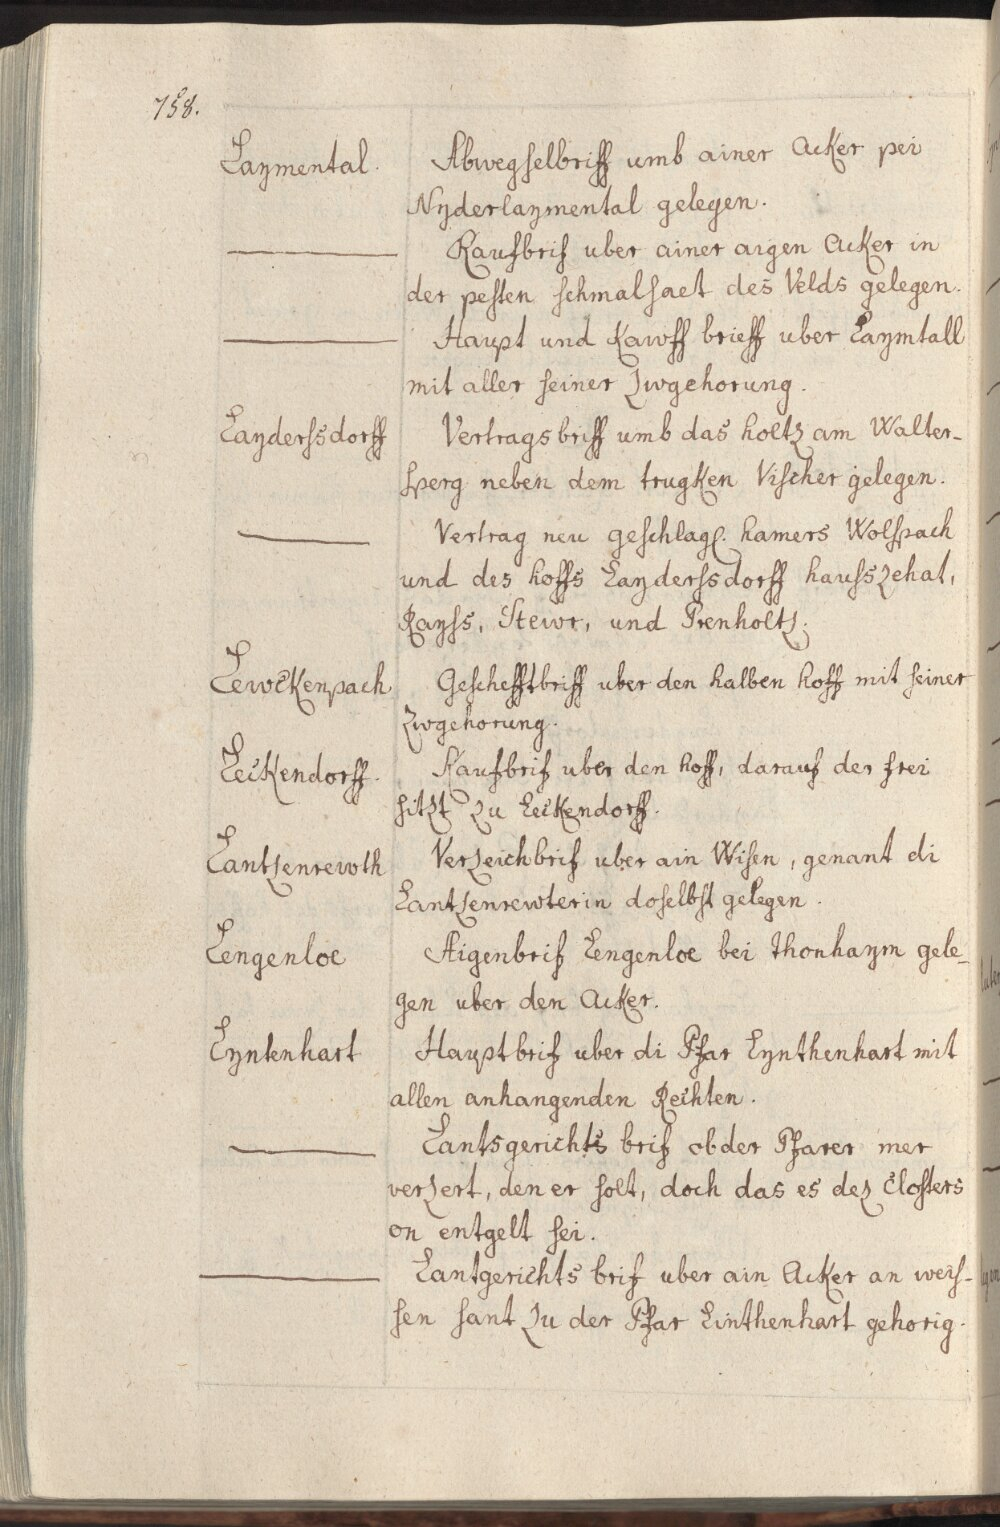 758.
Laymental. Abwegselbriff umb ainer Acker pei
Nyderlaymental gelegen.
Kaufbrif uber ainer aigen Acker in
der pesten schmalsaet des Velds gelegen.
Haupt und Kawff brieff uber Laymtall
mit aller seiner Zwgehorung.
Laydersdorff Vertragsbriff umb das holtz am Walter-
sperg neben dem trugken Vischer gelegen.
Vertrag neu geschlag. hamers Wolspach
und des hoffs Laydersdorff haussZehat,
Rayss, Stewr, und Prenholtz.
Lewckenpach Geschefftbriff uber den halben hoff mit seiner
Zwgehorung.
Leckendorff. Kaufbrif uber den hoff, darauf der frei
sitzt zu Leckendorff.
Lantzenrewth Verzeichbrif uber ain Wisen, genant di
Lantzenrewterin doselbst gelegen.
Lengenloe Aigenbrif Lengenloe bei thonhaym gele-
gen uber den Acker.
Lyntenhart Hauptbrif uber di Pfar Lynthenhart mit
allen anhangenden Rechten.
Lantsgerichts brif ob der Pfarer mer
verzert, den er solt, doch das es dez Closters
on entgelt sei.
Lantgerichts brif uber ain Acker an weis-
sen sant Zu der Pfar Linthenhart gehorig.